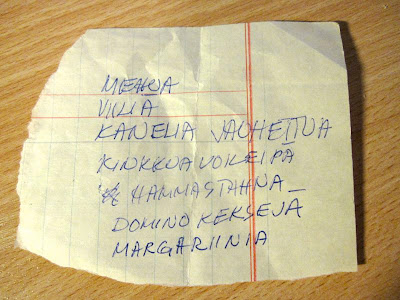 MEHUA
KANELIA JAUHETTUA
KINKKUA VOILEIPÄ
HAMMASTAHNA
DOMINO KEKSEJÄ
MARGARIINIA